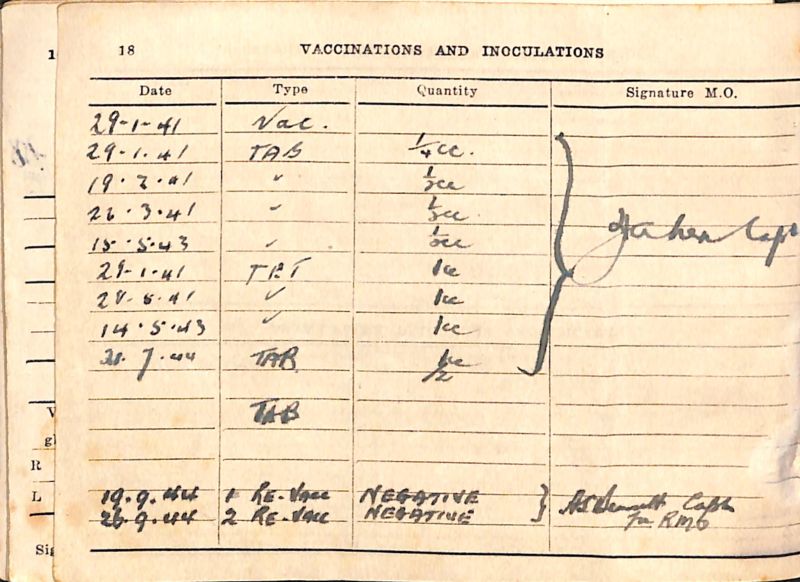 18 VACCINATIONS AND INOCULATIONS
Date Type Quantity Signature M.O.
29-1-41 Vac.
29.1.41 TAB 1/4cc.
19.2.41 " 1/2cc
26.3.41 " 1/2cc
15.5.43 " 1/2cc
29.1.41 TET 1cc
28.6.41 " 1cc
14.5.43 " 1cc
21.7.44 TAB 1cc
1/2
Capt
TAB
19.9.44 1 RE-VACC NEGATIVE Capt
26.9.44 2 RE-VACC NEGATIVE RMO
R
L